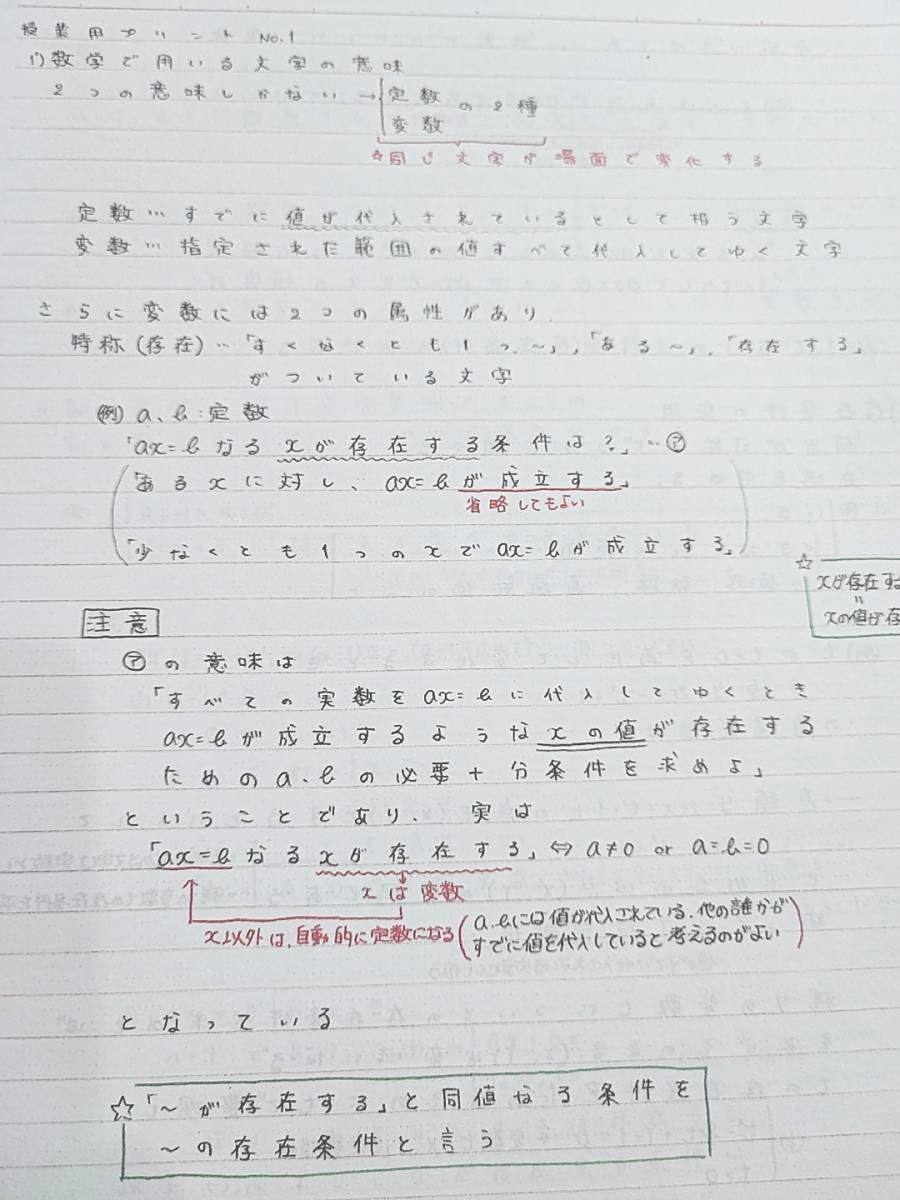 授業用プリント No.1
1) 数学で用いる文字の意味
2つの意味しかない→{定数 変数 の2種
☆同じ文字が場面で変化する
定数…すでに値が代入されているとして扱う文字
変数…指定された範囲の値すべて代入してゆく文字
さらに変数には2つの属性があり、
特称(存在)…「すくなくとも1つ、～」,「ある～」,「存在する」
がついている文字
(例) a、b:定数
「ax=bなるxが存在する条件は?」…㋐
「あるxに対し、ax=bが成立する」
省略してもよい
「少なくとも1つのxでax=bが成立する」
☆
xが存在す
〃
xの値が存
注意
㋐の意味は
「すべての実数をax=bに代入してゆくとき
ax=bが成立するようなxの値が存在する
ためのa、bの必要十分条件を求めよ」
ということであり、実は
「ax=bなるxが存在する」⇔a≠0 or a=b=0
xは変数
x以外は、自動的に定数になる(a、bには値が代入されている、他の誰かが
すでに値を代入していると考えるのがよい)
となっている
☆「～が存在する」と同値なる条件を
～の存在条件と言う